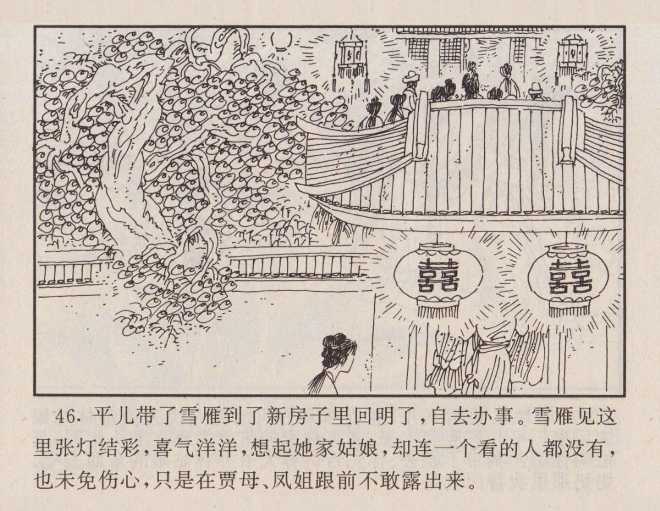 囍 囍
46. 平儿带了雪雁到了新房子里回明了,自去办事。雪雁见这
里张灯结彩,喜气洋洋,想起她家姑娘,却连一个看的人都没有,
也未免伤心,只是在贾母、凤姐跟前不敢露出来。